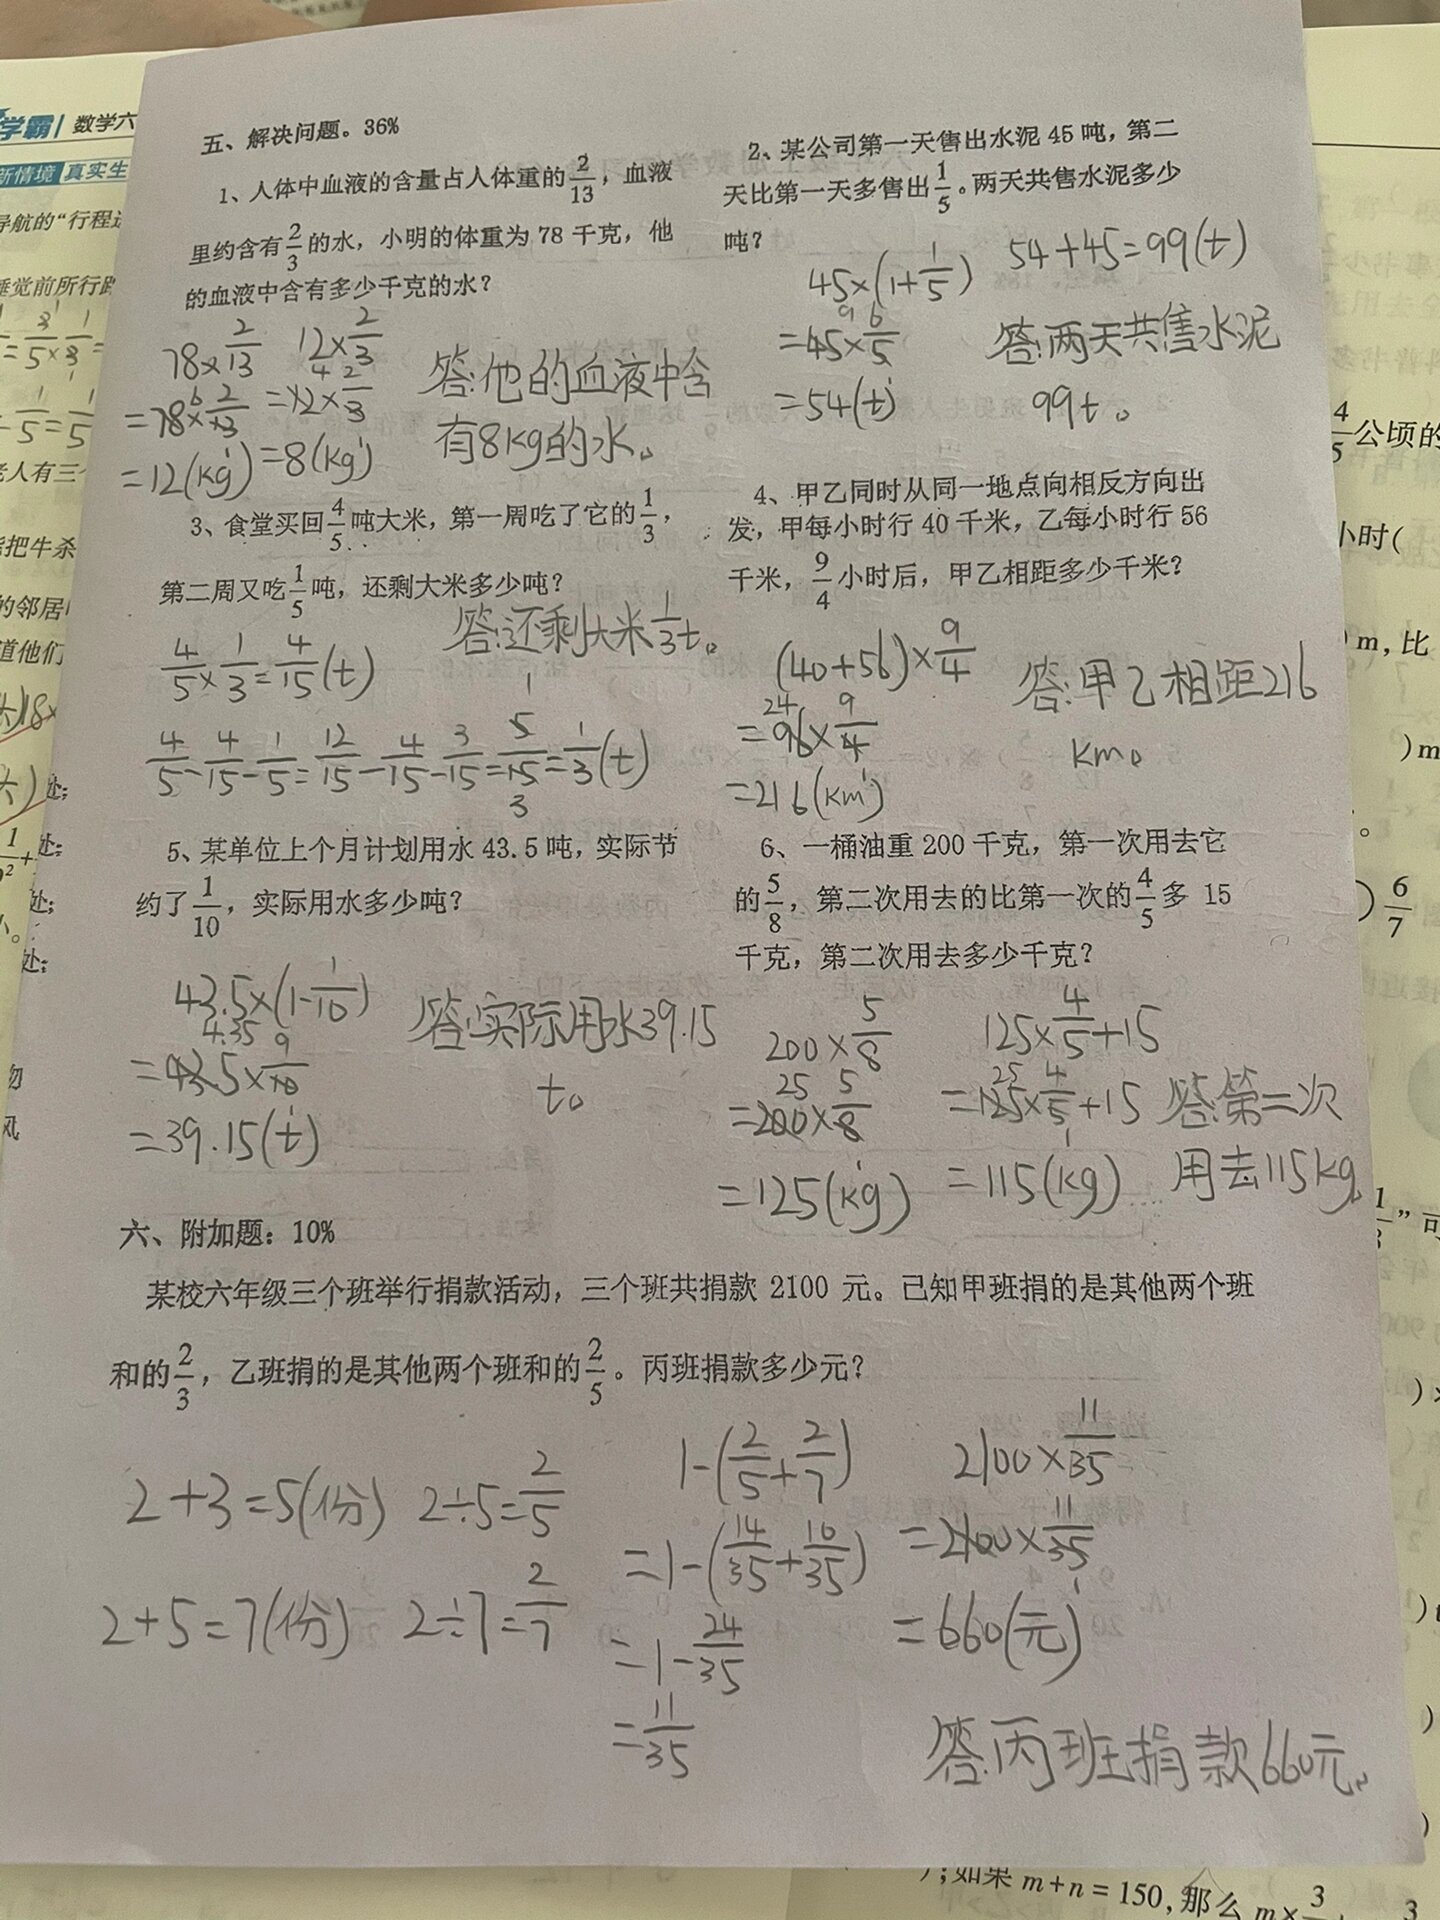 学霸 数学六
新情境 真实生
导航的“行程
睡觉前所行
老人有三
能把牛杀
的邻居
道他们
五、解决问题。36%
1、人体中血液的含量占人体重的2/13，血液
里约含有2/3的水，小明的体重为78千克，他
的血液中含有多少千克的水？
78×2/13
=78×2/13
=12(kg)
12×2/3
=12×2/3
=8(kg)
答:他的血液中含
有8kg的水。
2、某公司第一天售出水泥45吨，第二
天比第一天多售出1/5。两天共售水泥多少
吨？
45×(1+1/5)
=45×6/5
=54(t)
54+45=99(t)
答:两天共售水泥
99t。
3、食堂买回4/5吨大米，第一周吃了它的1/3，
第二周又吃1/5吨，还剩大米多少吨？
答:还剩大米1/3t。
4/5×1/3=4/15(t)
4/5-4/15-1/5=12/15-4/15-3/15=5/15=1/3(t)
4、甲乙同时从同一地点向相反方向出
发，甲每小时行40千米，乙每小时行56
千米，9/4小时后，甲乙相距多少千米？
(40+56)×9/4
=96×9/4
=216(km)
答:甲乙相距216
km。
5、某单位上个月计划用水43.5吨，实际节
约了1/10，实际用水多少吨？
43.5×(1-1/10)
=43.5×9/10
=39.15(t)
答:实际用水39.15
t。
6、一桶油重200千克，第一次用去它
的5/8，第二次用去的比第一次的4/5多 15
千克，第二次用去多少千克？
200×5/8
=200×5/8
=125(kg)
125×4/5+15
=125×4/5+15
=115(kg)
答:第二次
用去115kg。
六、附加题：10%
某校六年级三个班举行捐款活动，三个班共捐款 2100 元。已知甲班捐的是其他两个班
和的2/3，乙班捐的是其他两个班和的2/5。丙班捐款多少元？
2+3=5(份) 2÷5=2/5
2+5=7(份) 2÷7=2/7
1-(2/5+2/7)
=1-(14/35+10/35)
=1-24/35
=11/35
2100×11/35
=2100×11/35
=660(元)
答:丙班捐款660元。
4/5公顷的
小时(
m,比
)m
6/7
;如果m+n=150,那么m×3